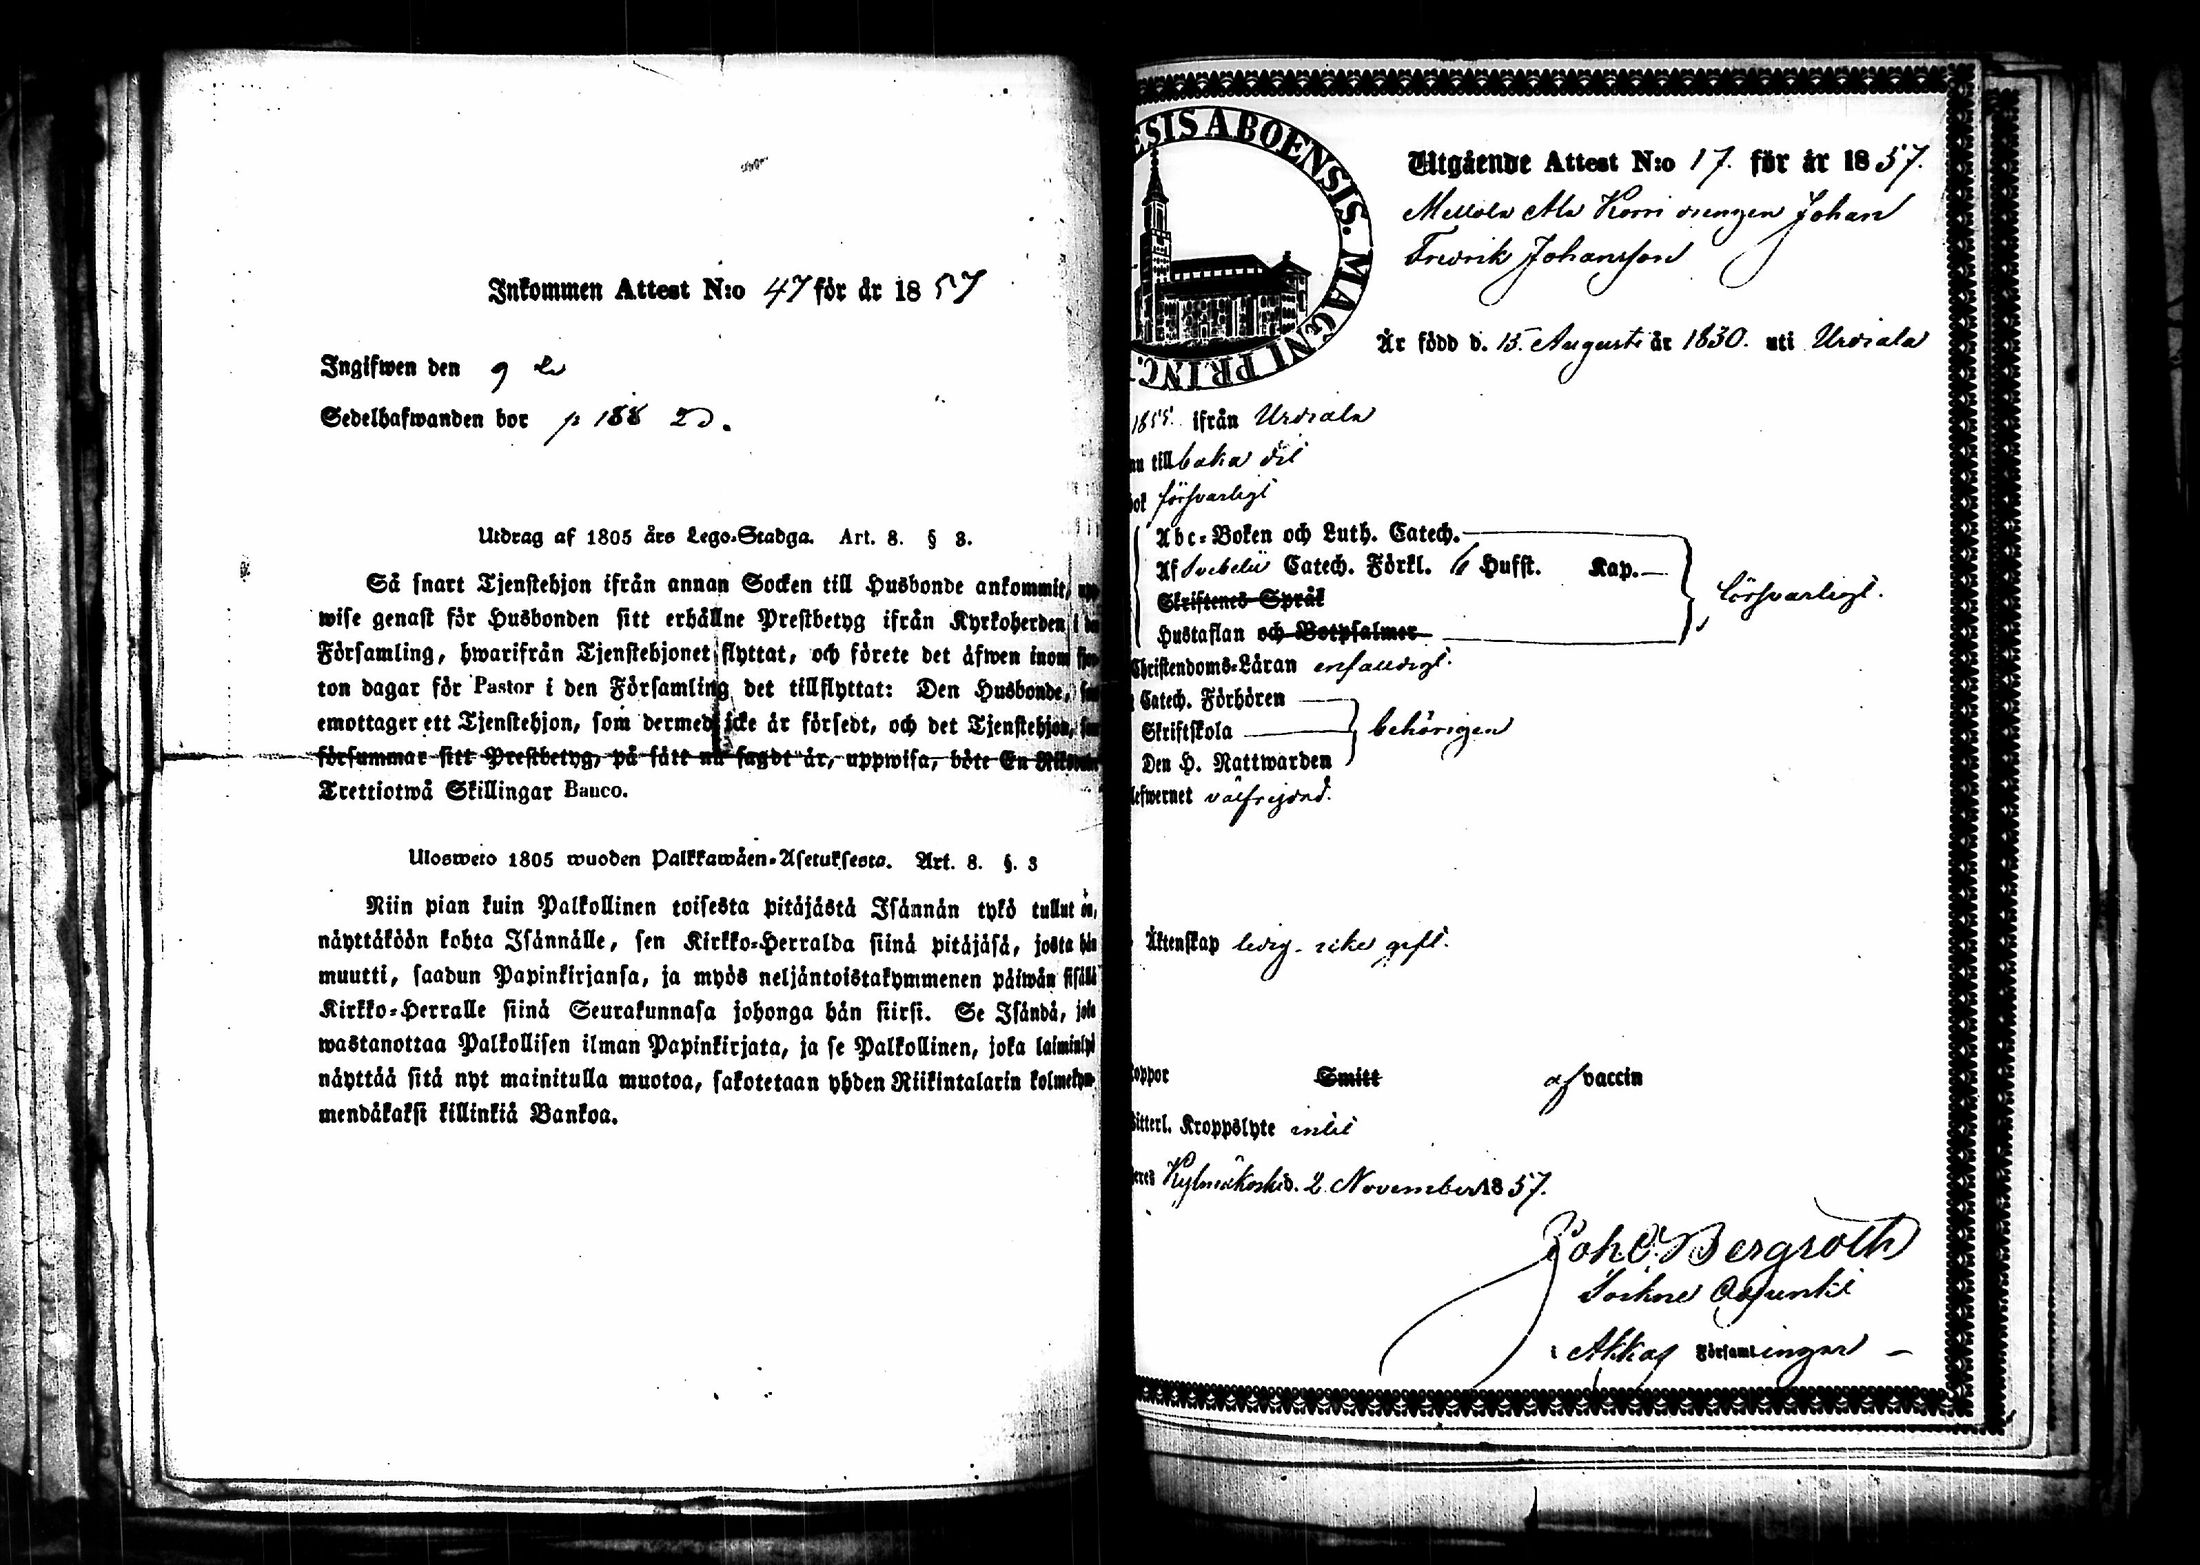 Inkommen Attest N:o 47 för år 1857
Ingifwen den 9
Sedelhafwanden bor p 188
Utdrag af 1805 års Lego-Stadga. Art. 8. § 3.
Så snart Tjenstehjon ifrån annan Socken till Husbonde ankommit,
wise genast för Husbonden sitt erhållne Prestbetyg ifrån Kyrkoherden i
Församling, hwarifrån Tjenstehjonet flyttat, och förete det äfwen inom
ton dagar för Pastor i den Församling det tillflyttat: Den Husbonde,
emottager ett Tjenstehjon, som dermed icke är försedt, och det Tjenstehjon,
försummar sitt Prestbetyg, på sätt nu sagdt är, uppwisa, böte En
Trettiotwå Skillingar Banco.
Ulosweto 1805 wuoden Palkkawäen-Asetuksesta. Art. 8. §. 3
Niin pian kuin Palkollinen toisesta pitäjästä Isännän tykö tullut on,
näyttäköön kohta Isännälle, sen Kirkko-Herralda siinä pitäjäsä, josta hän
muutti, saadun Papinkirjansa, ja myös neljäntoistakymmenen päiwän sisällä
Kirkko-Herralle siinä Seurakunnasa johonga hän siirsi. Se Isändä, joka
wastanottaa Palkollisen ilman Papinkirjata, ja se Palkollinen, joka laiminlyö
näyttää sitä nyt mainitulla muotoa, sakotetaan yhden Riikintalarin kolmekym-
mendäkaksi killinkiä Bankoa.
ESIS ABOENSIS. MAGNI PRINC.
Utgående Attest N:o 17. för år 1857.
Mellola Ala Korri drengen Johan
Fredrik Johansson
Är född d. 15. Augusti år 1830. uti Urdiala
1855. ifrån Urdiala
nu tillbaka dit
bok försvarligt
Abc-Boken och Luth. Catech.
Af Svebelii Catech. Förkl. 6 Hufst. Kap.
Skriftenes Språk
Hustaflan och Botpsalmer
försvarligt.
Christendoms-Läran enfaldigt.
Catech. Förhören
Skriftskola
Den H. Nattwarden
behörigen
lefwernet välfrejdad.
Äktenskap ledig - icke gift.
koppor Smitt af vaccin
Sitterl. Kroppslyte intet
Kylmäkoski d. 2 November 1857.
Joh C Bergroth
Sockne Adjunkt
i Akkas Församlingar